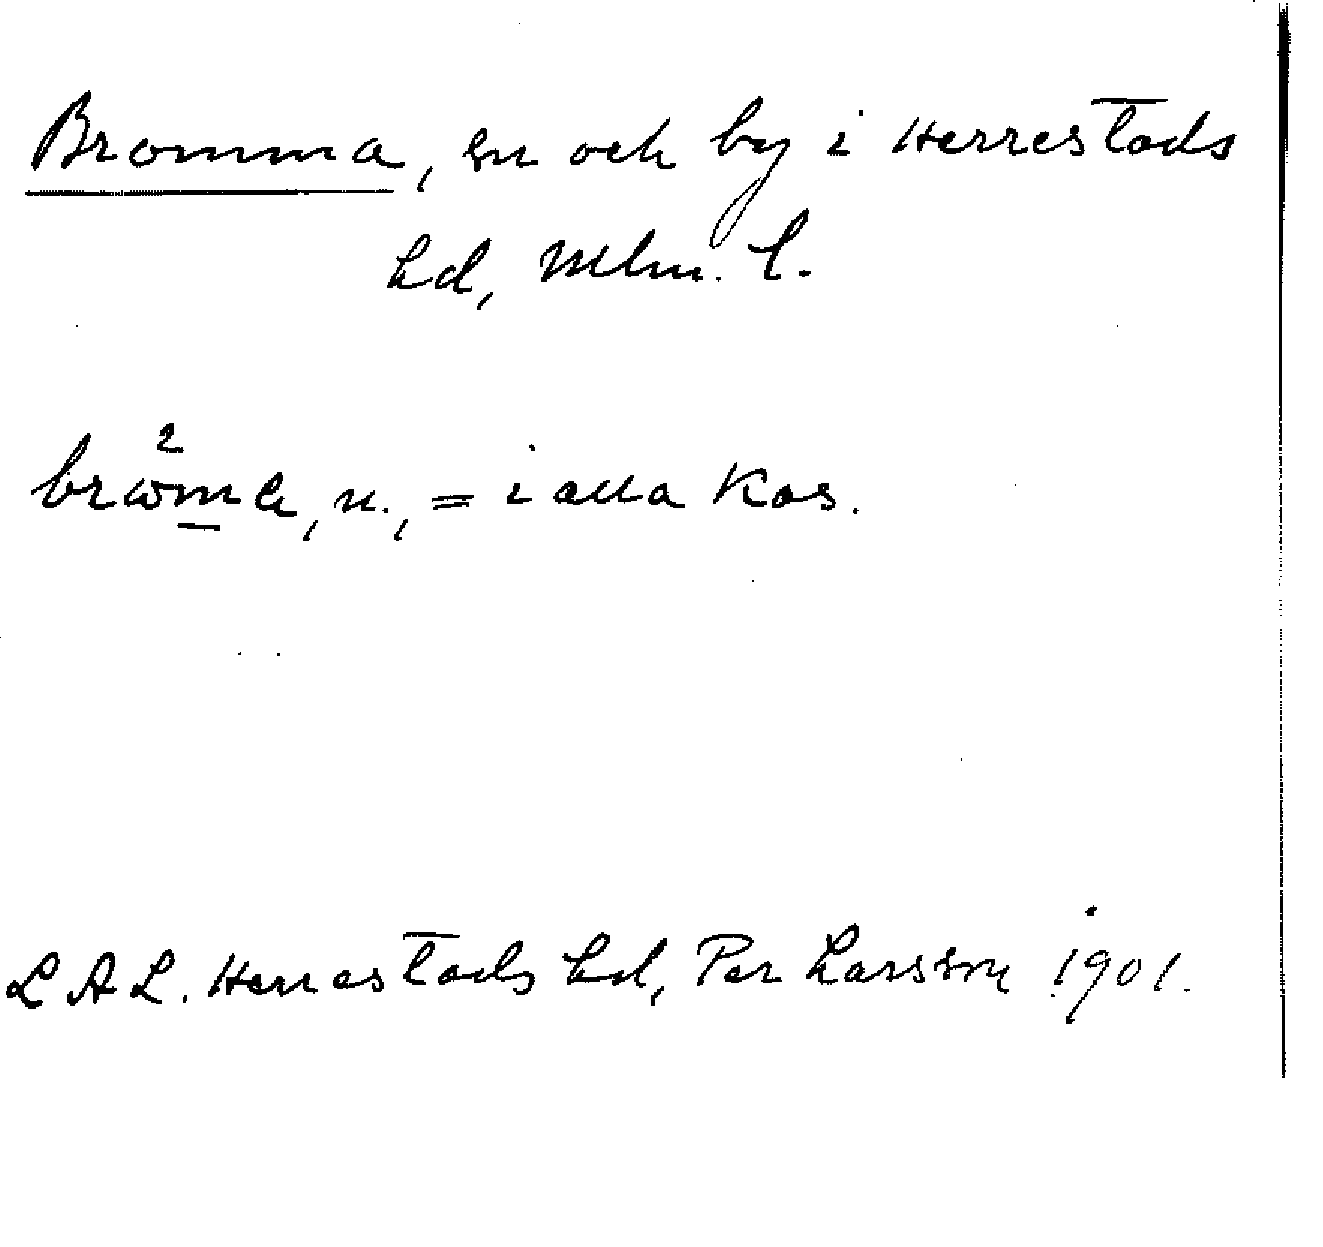 Bromma, sn och by i Herrestads
hd, Mlm. l.
brω²ma, n., = i alla kas.
LAL. Herrestads hd, Per Larsson 1901.